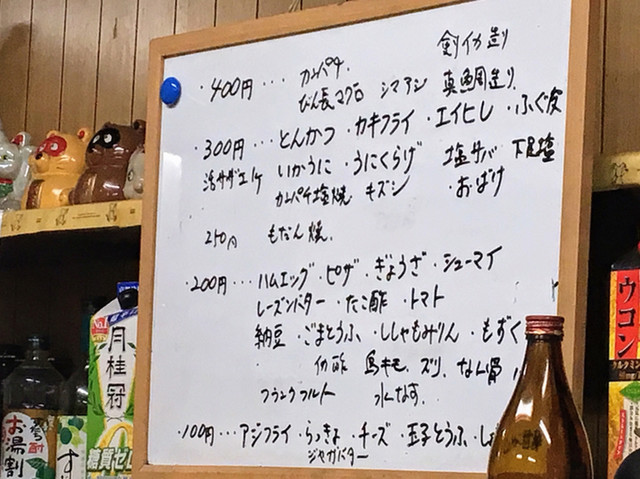 剣イカ造り
・400円… カンパチ
びん長マグロ シマアジ 真鯛造り
・300円… とんかつ ・カキフライ ・エイヒレ ・ふぐ皮
活サザエ1ケ いかうに ・うにくらげ 塩サバ 下足塩
カンパチ塩焼 キズシ ・おばけ
250円 もだん焼
・200円… ・ハムエッグ ・ピザ ・ぎょうざ ・シューマイ
レーズンバター ・たこ酢 ・トマト
納豆 ・ごまとうふ ・ししゃもみりん ・もずく
酢 鳥キモ、ズリ、なん
フランクフルト 水なす
・100円… アジフライ ・らっきょ ・チーズ ・玉子とうふ
ジャガバター
No.1
月桂冠
糖質ゼロ
お湯割
す
ウコン